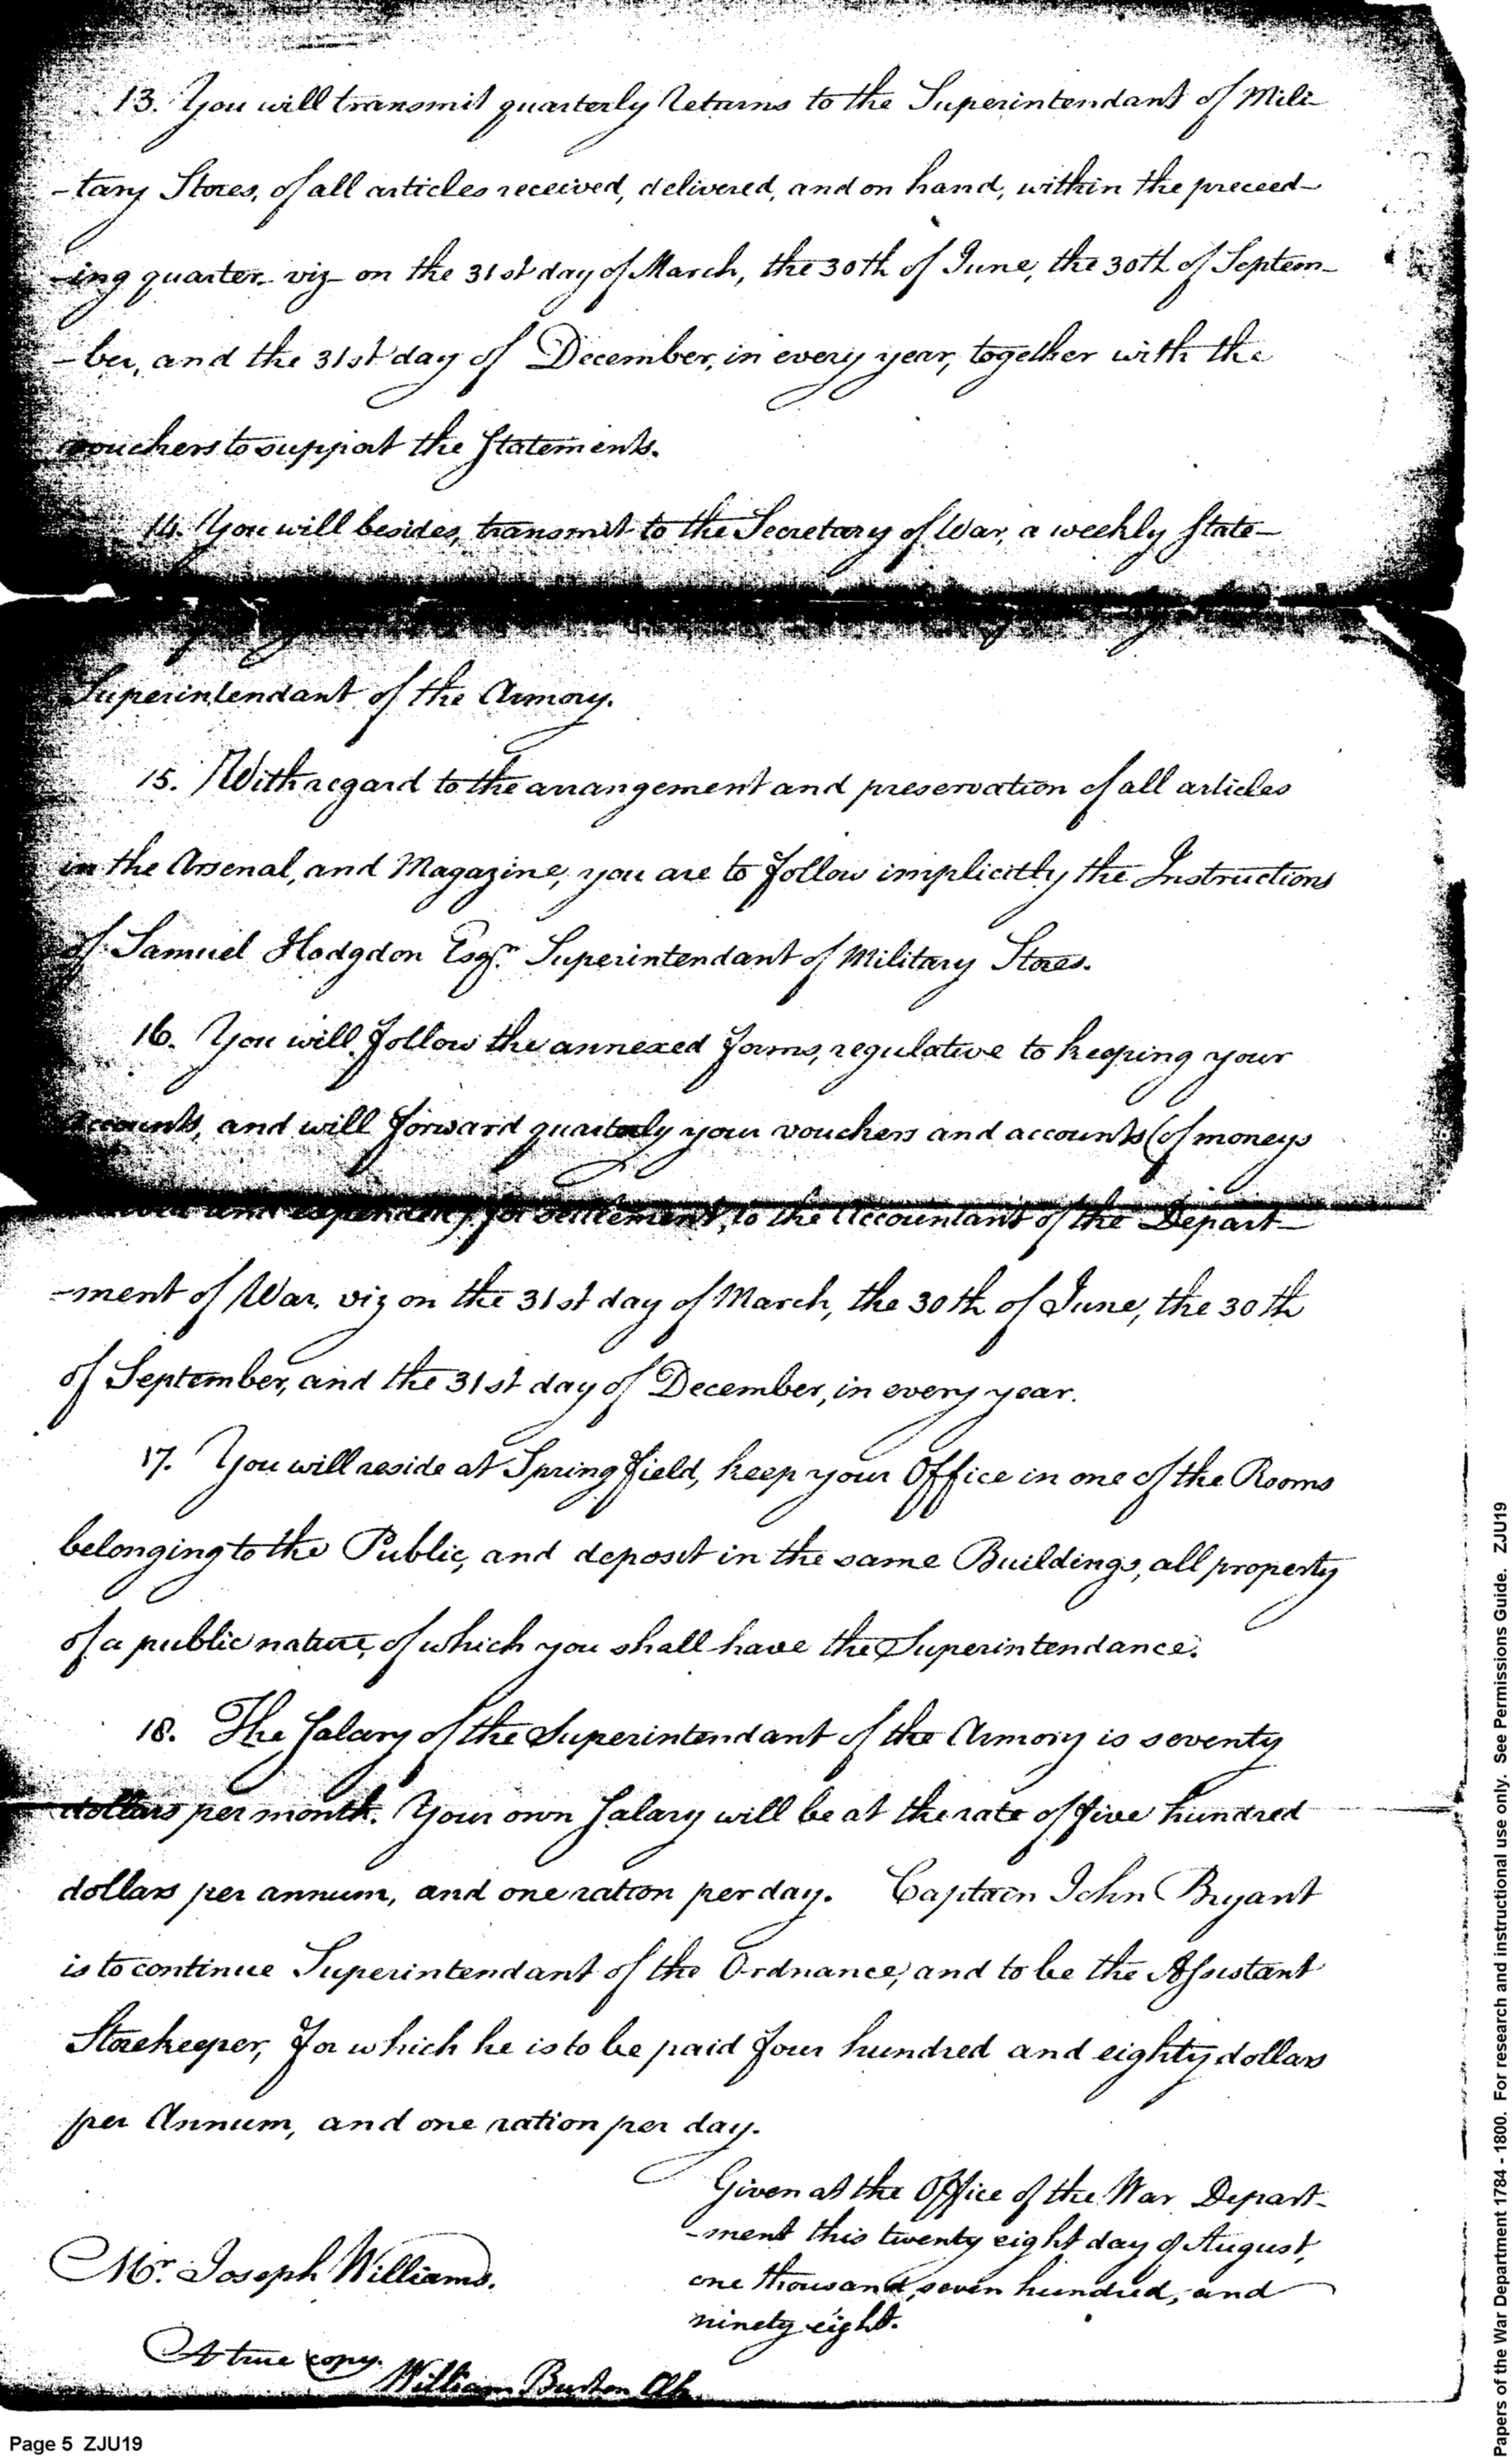 13. You will transmit quarterly Returns to the Superintendant of Mili-
-tary Stores, of all articles received, delivered, and on hand, within the preceed-
-ing quarter viz on the 31st day of March, the 30th of June, the 30th of Septem-
-ber, and the 31st day of December, in every year, together with the
vouchers to support the Statements.
14. You will besides, transmit to the Secretary of War, a weekly State-
Superintendant of the Armory.
15. With regard to the arrangement and preservation of all articles
in the Arsenal, and Magazine, you are to follow implicitly the Instructions
of Samuel Hodgdon Esqr. Superintendant of Military Stores.
16. You will follow the annexed forms, regulative to keeping your
accounts, and will forward quarterly your vouchers and accounts (of moneys
and expended) for settlement, to the Accountant of the Depart-
-ment of War, viz on the 31st day of March, the 30th of June, the 30th
of September, and the 31st day of December, in every year.
17. You will reside at Springfield, keep your Office in one of the Rooms
belonging to the Public, and deposit in the same Buildings, all property
of a public nature, of which you shall have the Superintendance.
18. The Salary of the Superintendant of the Armory is seventy
dollars per month. Your own Salary will be at the rate of five hundred
dollars per annum, and one ration per day. Captain John Bryant
is to continue Superintendant of the Ordnance, and to be the Assistant
Storekeeper, for which he is to be paid four hundred and eighty dollars
per Annum, and one ration per day.
Given at the Office of the War Depart-
-ment this twenty eight day of August,
one thousand, seven hundred, and
ninety eight.
Mr. Joseph Williams.
A true copy.
William Burton Clk.
Page 5 ZJU19
Papers of the War Department 1784 - 1800. For research and instructional use only. See Permissions Guide. ZJU19